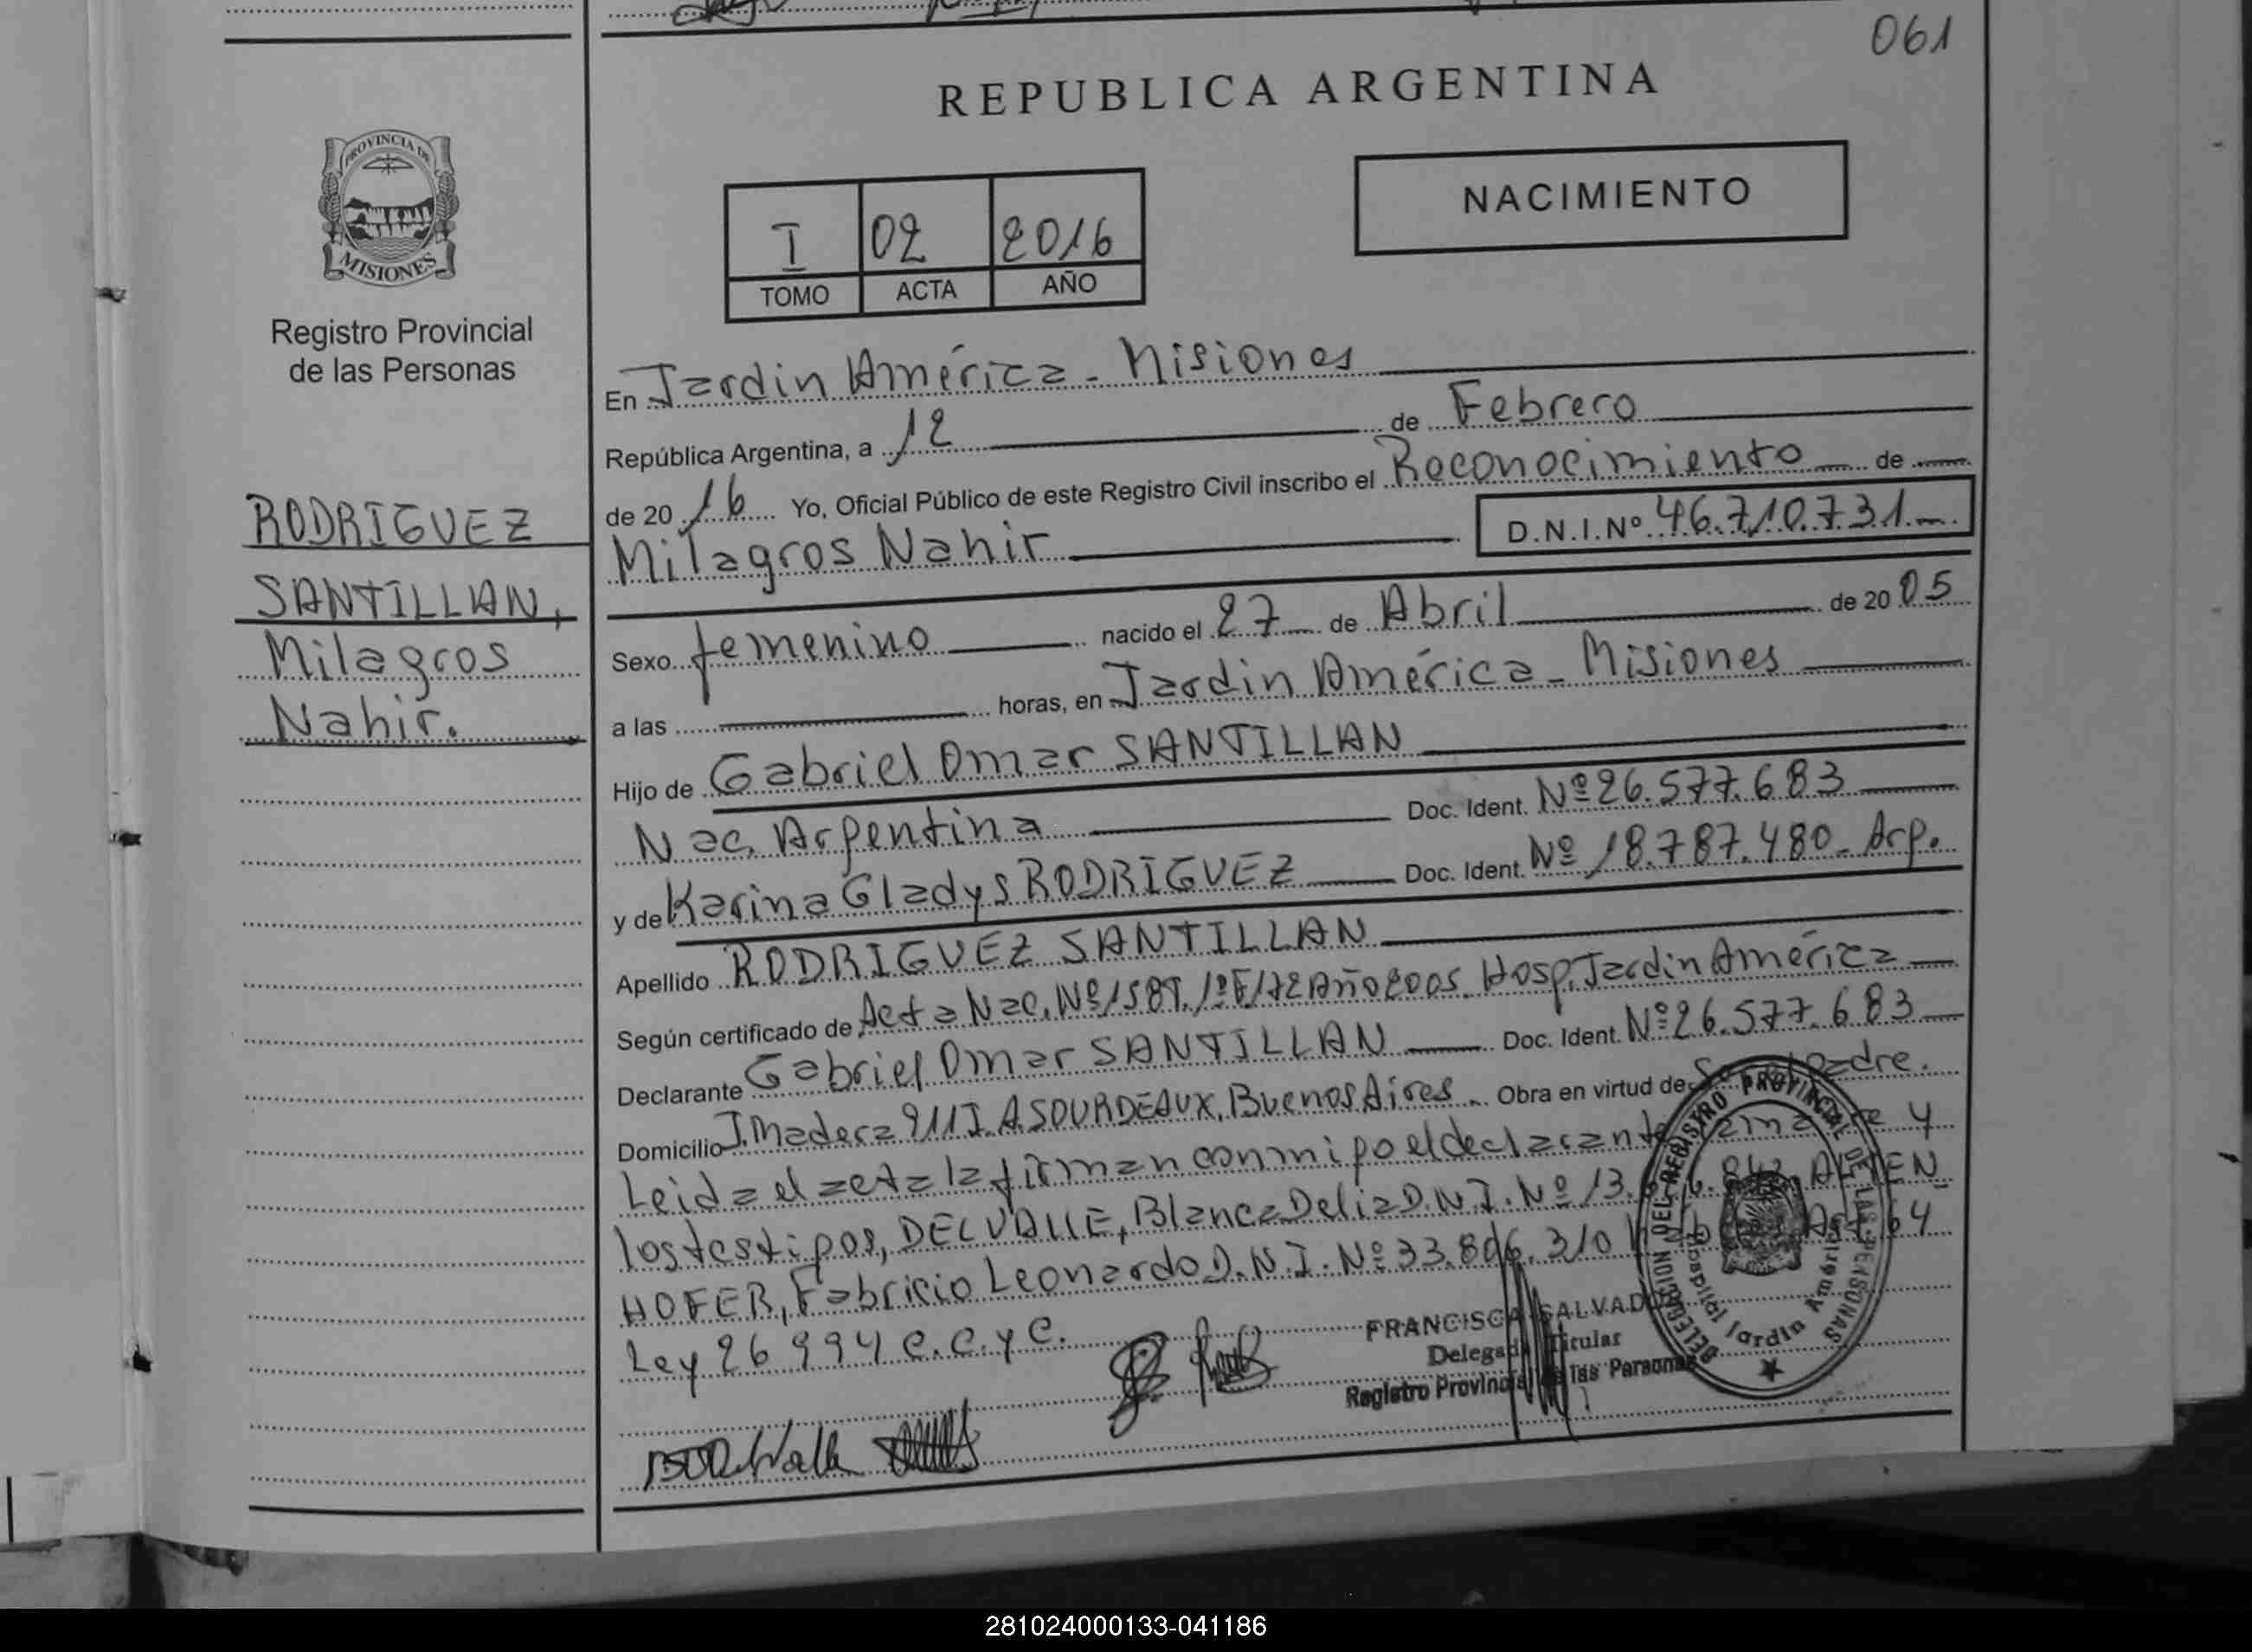 061
REPUBLICA ARGENTINA
PROVINCIA DE
MISIONES
Registro Provincial
de las Personas
I 02 2016
TOMO ACTA AÑO
NACIMIENTO
RODRIGUEZ
SANTILLAN,
Milagros
Nahir.
En Jardin América - Misiones
República Argentina, a 12 de Febrero
de 20 16 Yo, Oficial Público de este Registro Civil inscribo el Reconocimiento de
Milagros Nahir D.N.I.Nº 46.710.731.
Sexo femenino nacido el 27 de Abril de 20 05
a las horas, en Jardin América - Misiones
Hijo de Gabriel Omar SANTILLAN
Nac. Argentina Doc. Ident. Nº 26.577.683
y de Karina Gladys RODRIGUEZ Doc. Ident. Nº 18.787.480 - Arg.
Apellido RODRIGUEZ SANTILLAN
Según certificado de Acta Nac. Nº 158 T. 1º F/72 Año 2005. Hosp. Jardin América
Declarante Gabriel Omar SANTILLAN Doc. Ident. Nº 26.577.683
Domicilio J. Madera 911 I. A SOURDEAUX, Buenos Aires. Obra en virtud de padre.
Leida el acta la firman conmigo el declarante, la madre y
los testigos, DEL VALLE, Blanca Delia D.N.I. Nº 13.
HOFER, Fabricio Leonardo D.N.I. Nº 33.806.310 Art 64
Ley 26 994 C.C. y C.
FRANCISCA SALVADOR
Delegada Titular
Registro Provincial de las Personas
DELEGACION DEL REGISTRO PROVINCIAL DE LAS PERSONAS
Hospital Jardin América
281024000133-041186